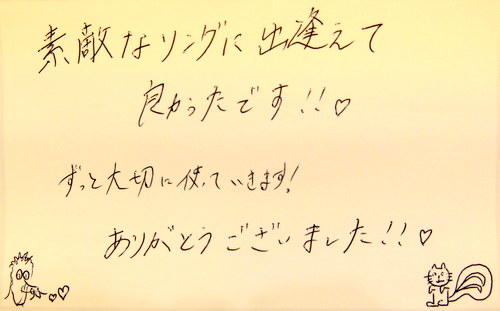 素敵なリングに出逢えて
良かったです!!♡
ずっと大切に使っていきます!
ありがとうございました!!♡